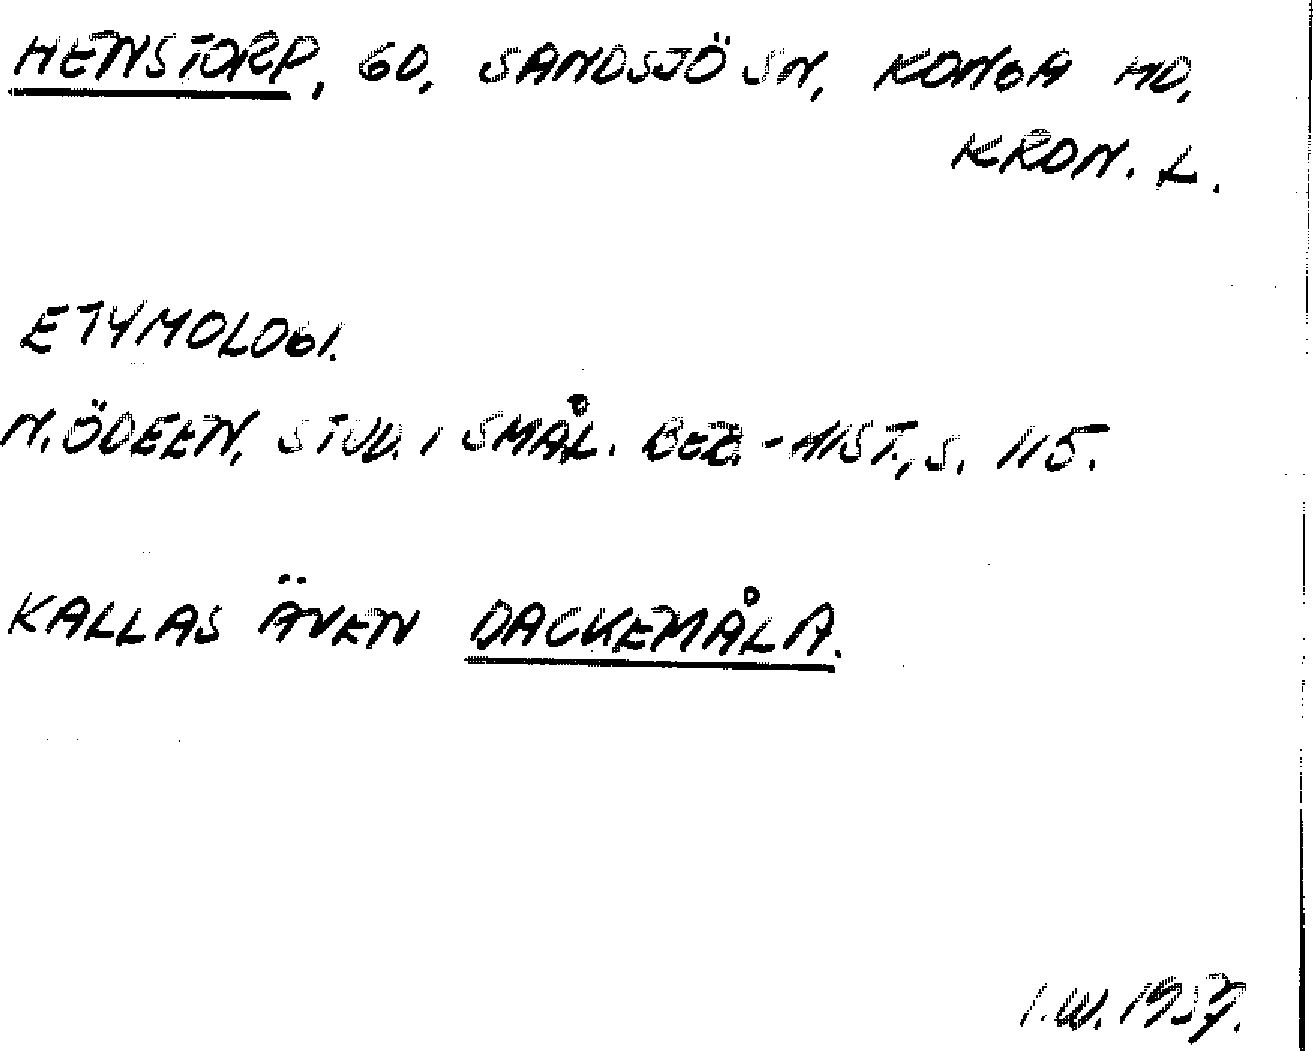 HENSTORP, GD, SANDSJÖ SN, KONGA HD,
KRON. L.
ETYMOLOGI.
N. ÖDEEN, STUD. I SMÅL. BEB.-HIST., S. 115.
KALLAS ÄVEN DACKEMÅLA.
I.W. 1957.